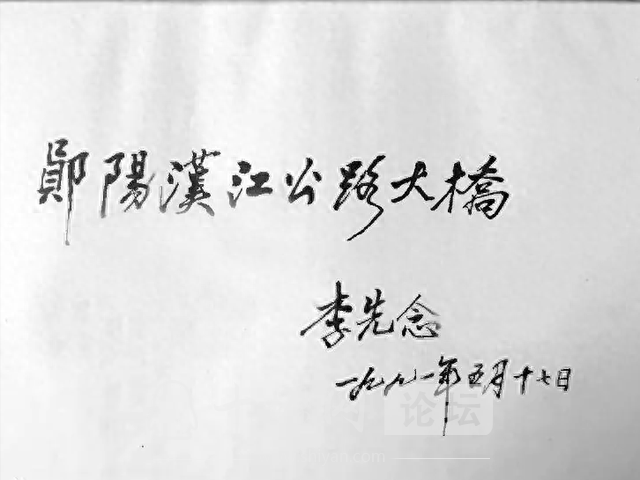 鄖陽漢江公路大橋
李先念
一九九一年五月十七日
论坛